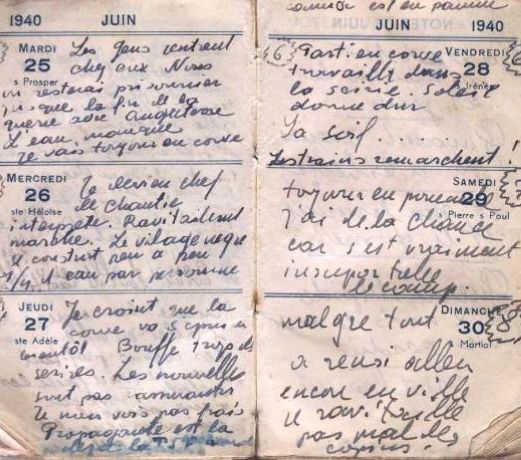 1940 JUIN
MARDI
25
s Prosper
Les gens rentrent
chez eux. Nous
on resterai prisonnier
jusque la fin de la
guerre avec Angleterre
L'eau manque
Je vais toujour en corvé
MERCREDI
26
ste Héloïse
Je devien chef
de chantie
interprete. Ravitaillement
marche. Le village negre
se construit peu a peu
1/4 l eau par personne
JEUDI
27
ste Adèle
Je croint que la
corve va
bientôt Bouffe trop de
serises. Les nouvelles
sont pas
Je me vois pas frais
Propagande est la
JUIN 1940
VENDREDI
28
Irénée
Parti en corve
travaille dans
la scirie. Soleil
donne dur
La soif......
Les trains remarchent!
SAMEDI
29
s Pierre s Paul
toujour en
j'ai de la chance
car s'est vraiment
insuportable
le camp.
DIMANCHE
30
Martial
malgre tout
a reusi allen
encore en ville
se ravitaille
pas mal des
copins.